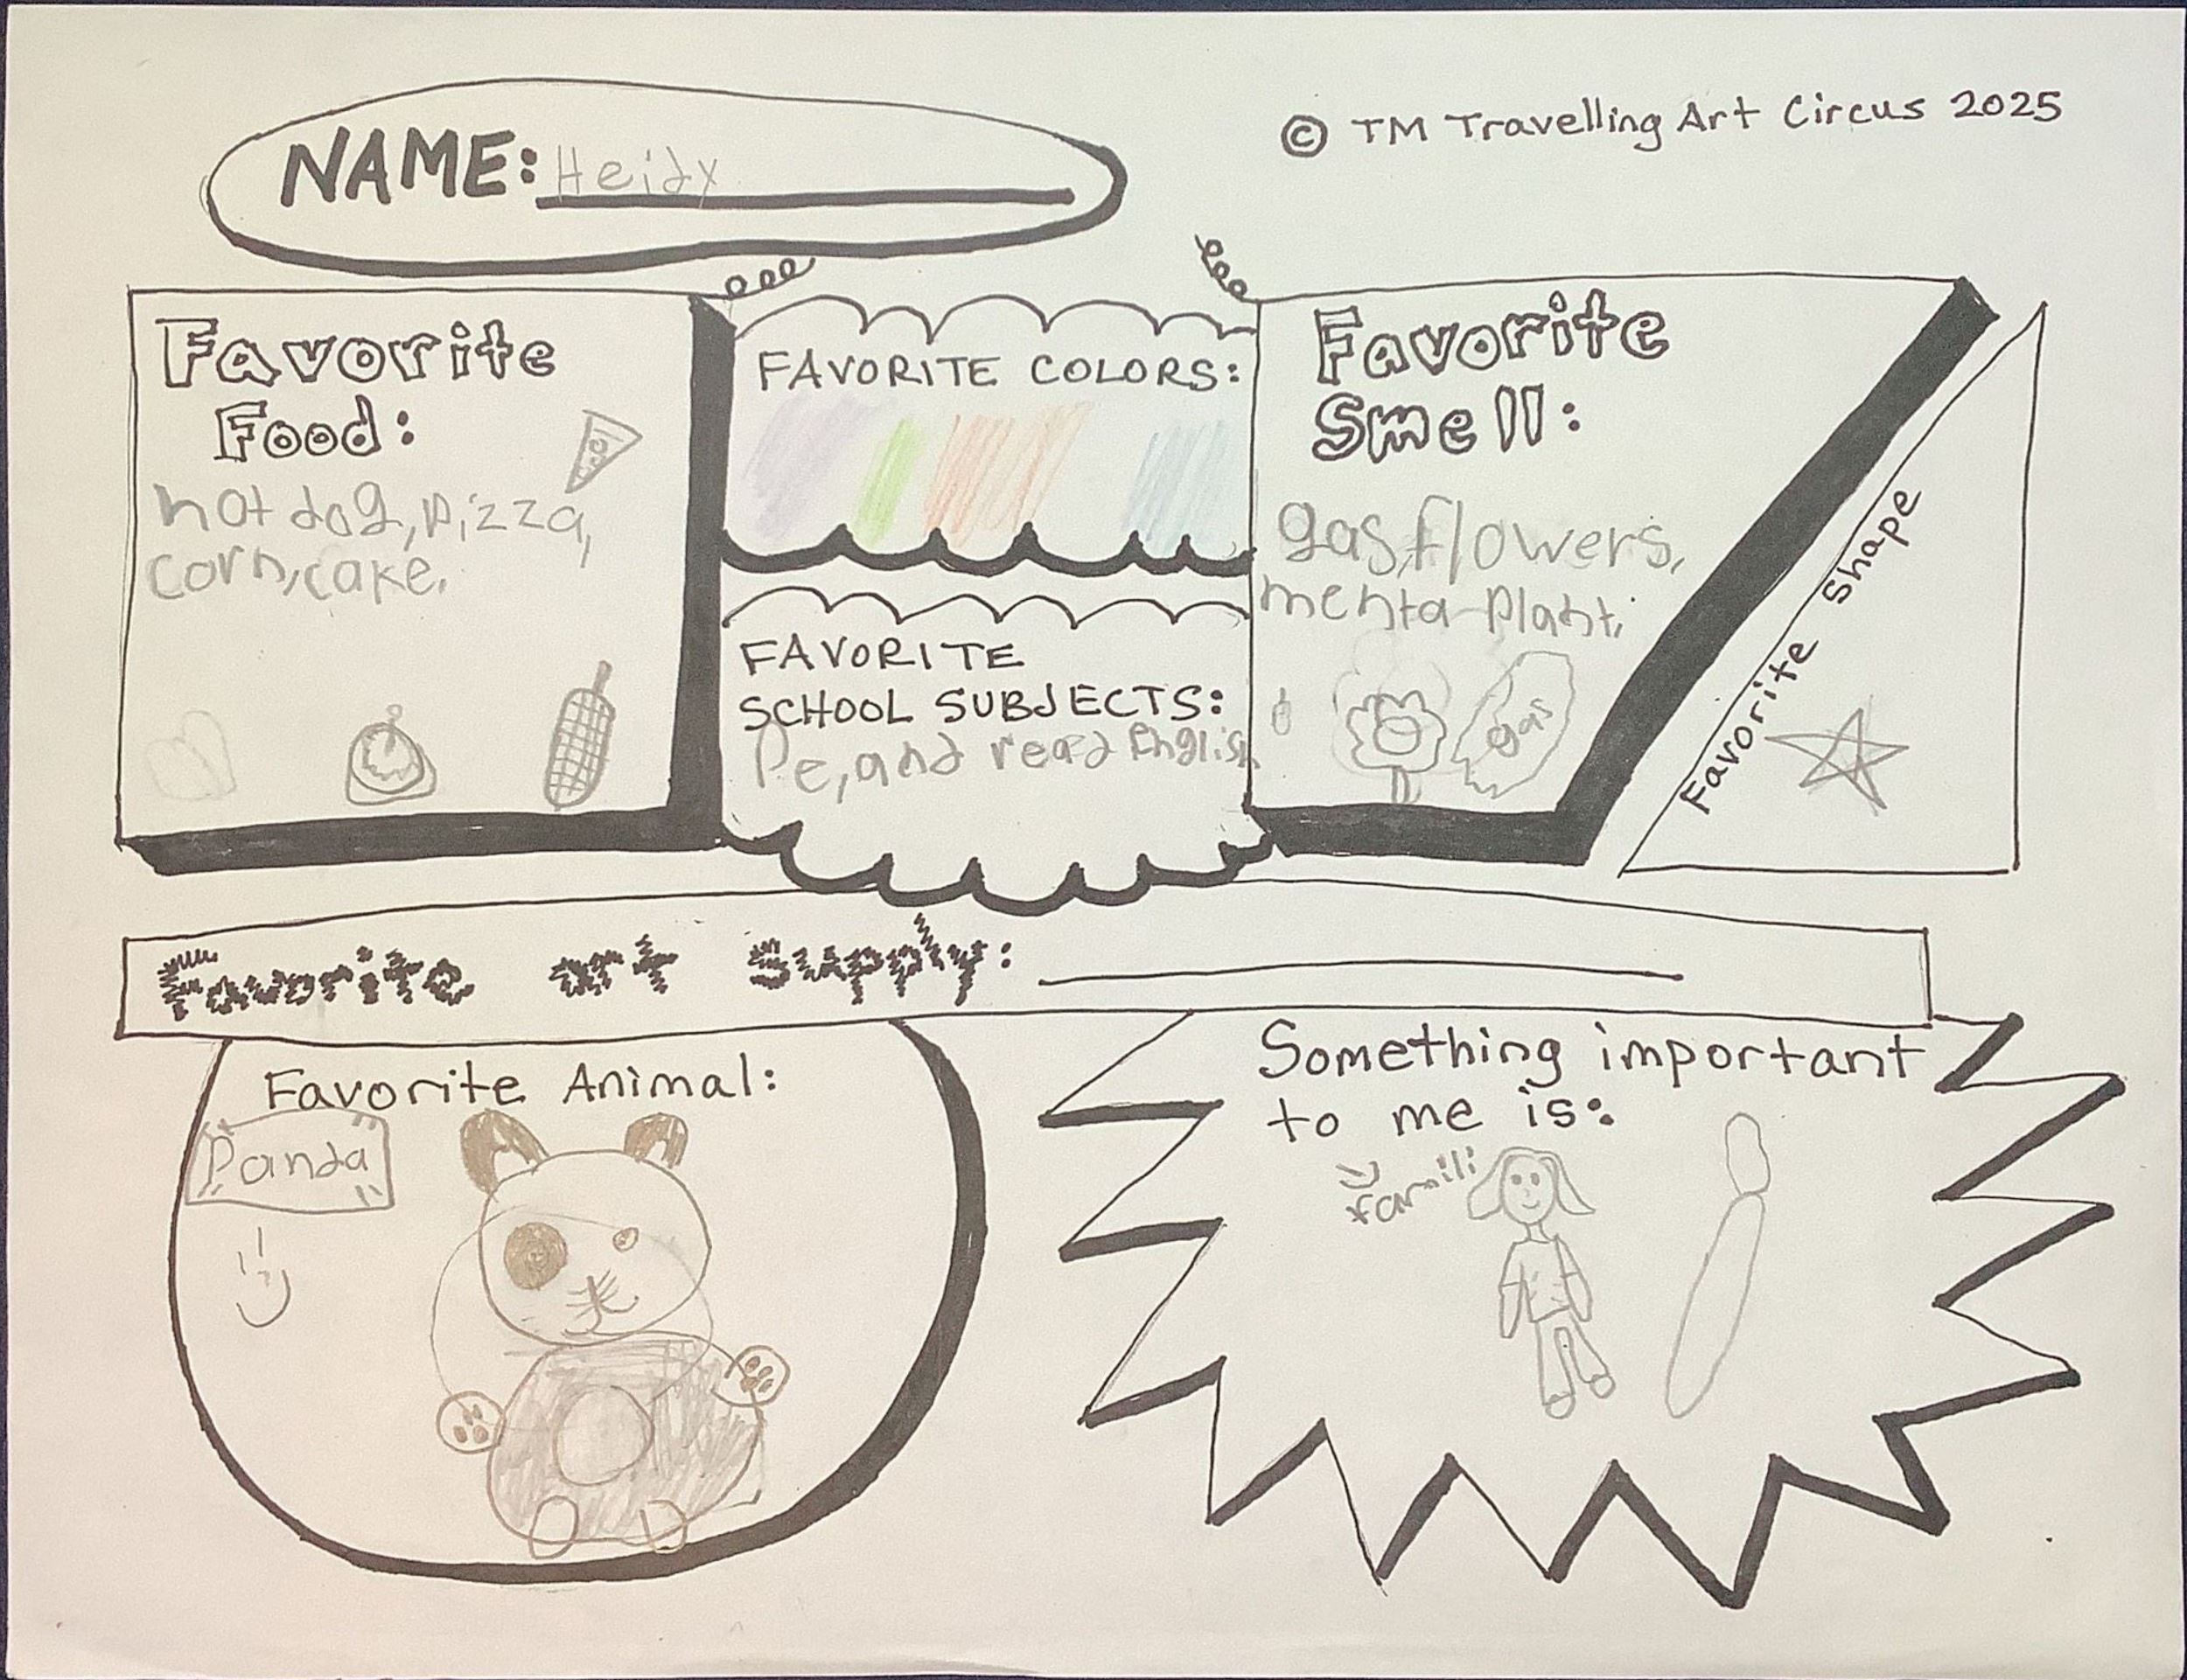 © TM Travelling Art Circus 2025
NAME: Heidy
Favorite
Food:
hot dog, pizza,
corn, cake.
FAVORITE COLORS:
FAVORITE
SCHOOL SUBJECTS:
Pe, and read English
Favorite
Smell:
gas, flowers,
menta plant.
gas
Favorite Shape
Favorite art Supply:
Favorite Animal:
Panda
Something important
to me is:
famili